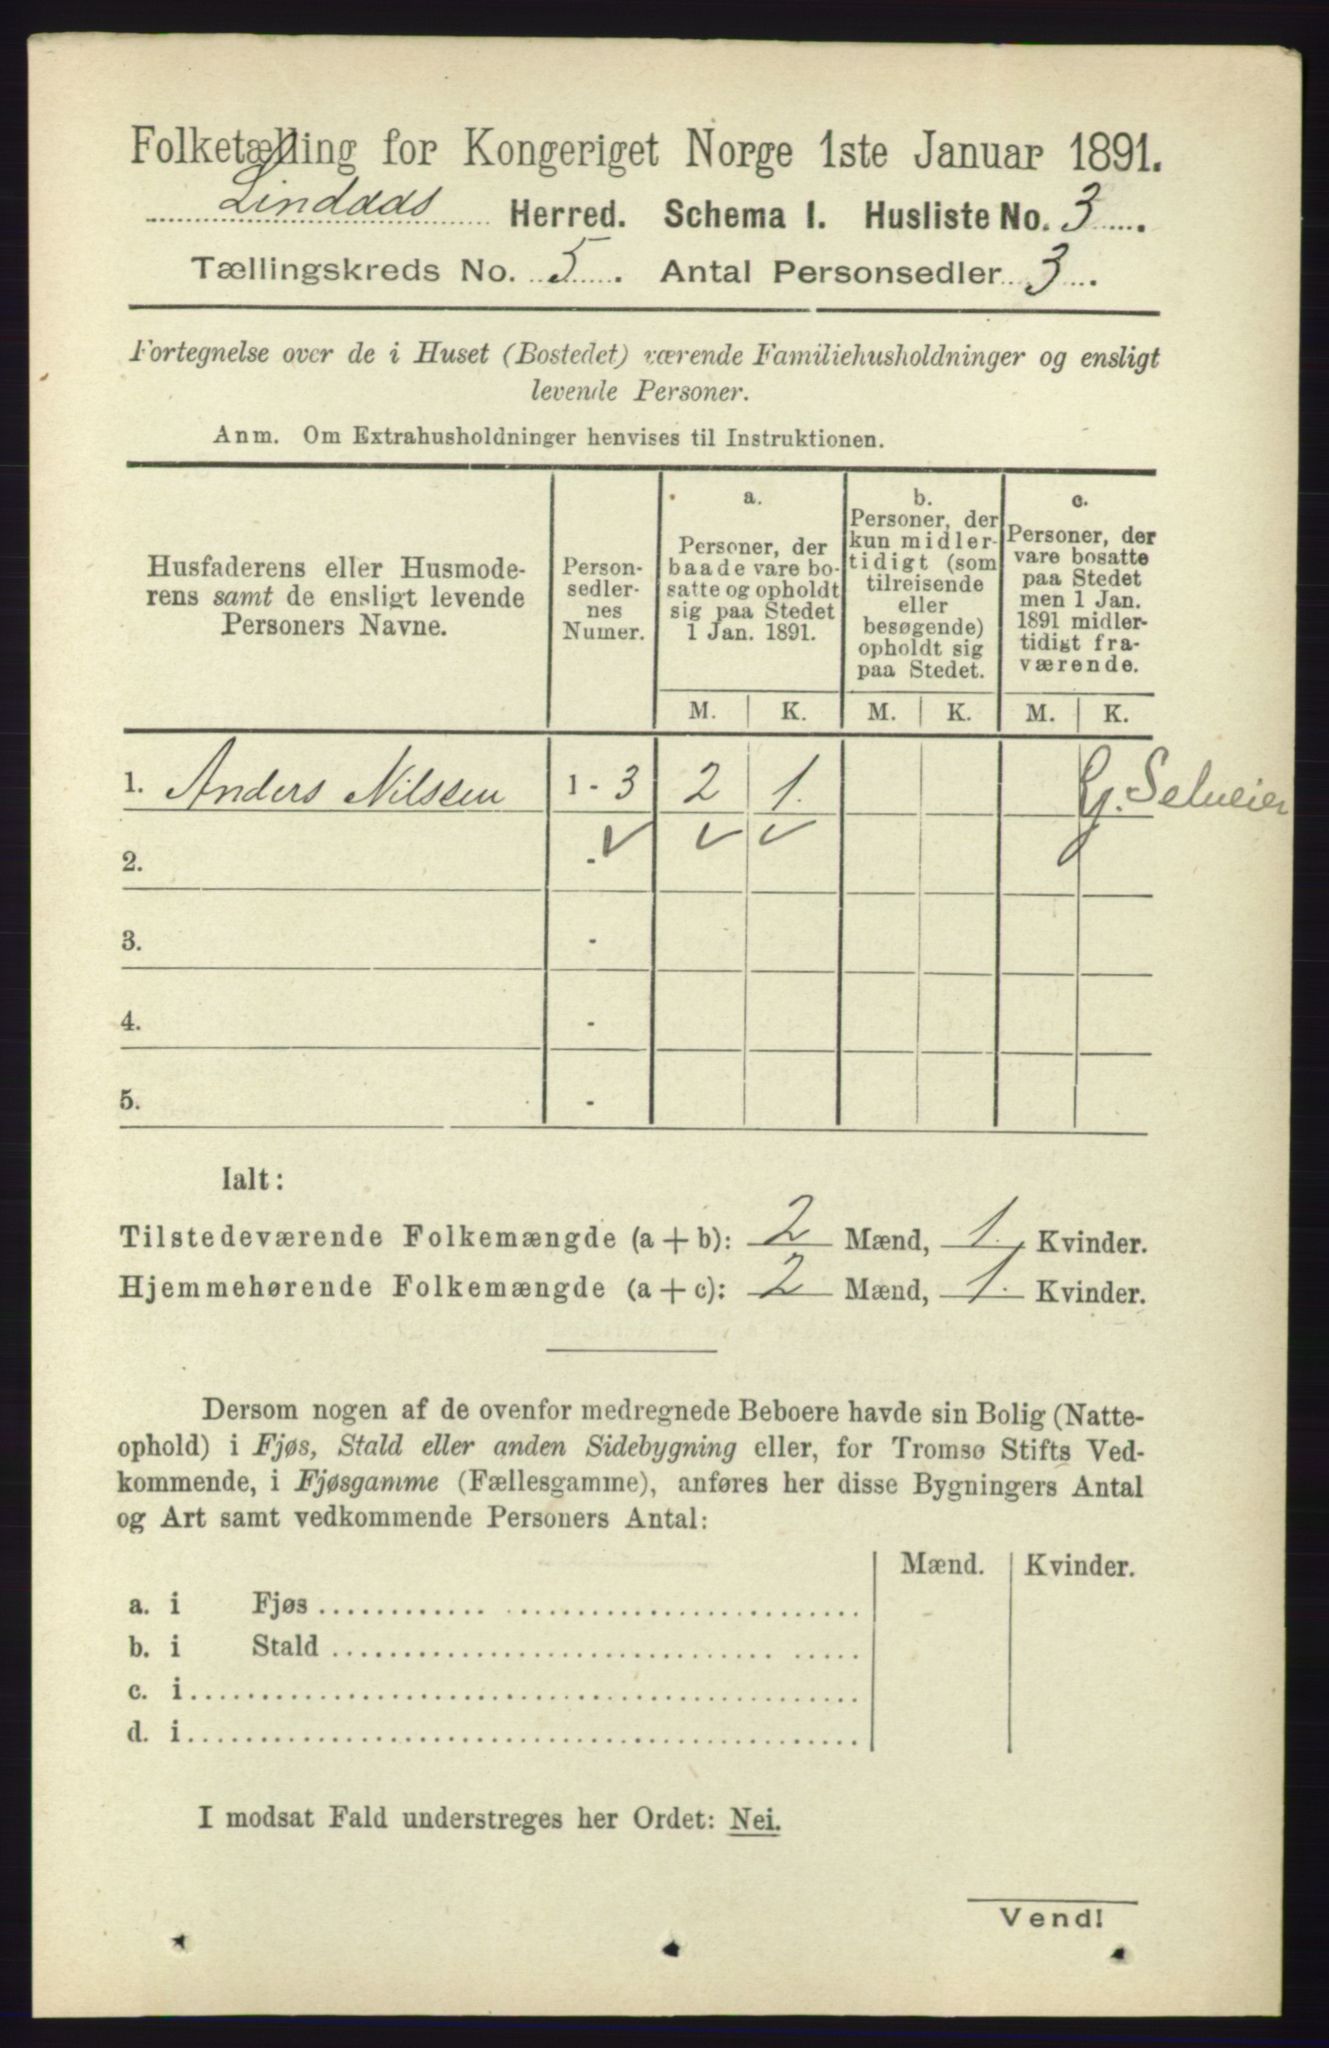 Folketælling for Kongeriget Norge 1ste Januar 1891.
Lindaas Herred. Schema I. Husliste No. 3.
Tællingskreds No. 5. Antal Personsedler 3.
Fortegnelse over de i Huset (Bostedet) værende Familiehusholdninger og ensligt
levende Personer.
Anm. Om Extrahusholdninger henvises til Instruktionen.
Husfaderens eller Husmode-
rens samt de ensligt levende
Personers Navne.
Person-
sedler-
nes
Numer.
a.
Personer, der
baade vare bo-
satte og opholdt
sig paa Stedet
1 Jan. 1891.
b.
Personer, der
kun midler-
tidigt (som
tilreisende
eller
besøgende)
opholdt sig
paa Stedet.
c.
Personer, der
vare bosatte
paa Stedet
men 1 Jan.
1891 midler-
tidigt fra-
værende.
M. K. M. K. M. K.
1. Anders Nilssen 1 - 3 2 1. G. Selveier
2. -
3. -
4. -
5. -
Ialt:
Tilstedeværende Folkemængde (a + b): 2 Mænd, 1. Kvinder.
Hjemmehørende Folkemængde (a + c): 2 Mænd, 1. Kvinder.
Dersom nogen af de ovenfor medregnede Beboere havde sin Bolig (Natte-
ophold) i Fjøs, Stald eller anden Sidebygning eller, for Tromsø Stifts Ved-
kommende, i Fjøsgamme (Fællesgamme), anføres her disse Bygningers Antal
og Art samt vedkommende Personers Antal:
Mænd. Kvinder.
a. i Fjøs
b. i Stald
c. i
d. i
I modsat Fald understreges her Ordet: Nei.
Vend!